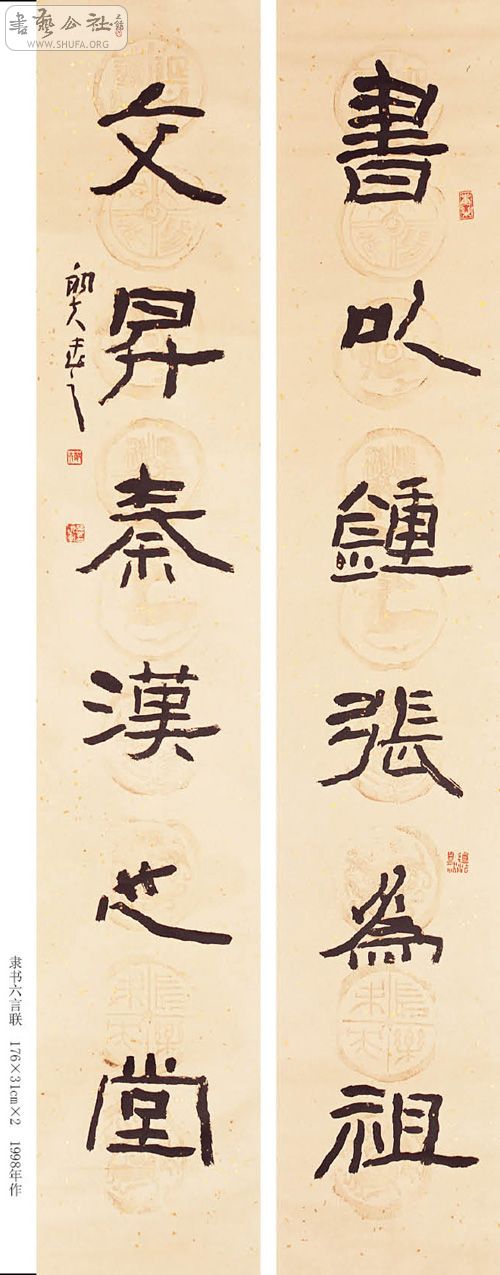 書藝公社
WWW.SHUFA.ORG
書以鍾張為祖
文昇秦漢之堂
隶书六言联 176×31cm×2 1998年作